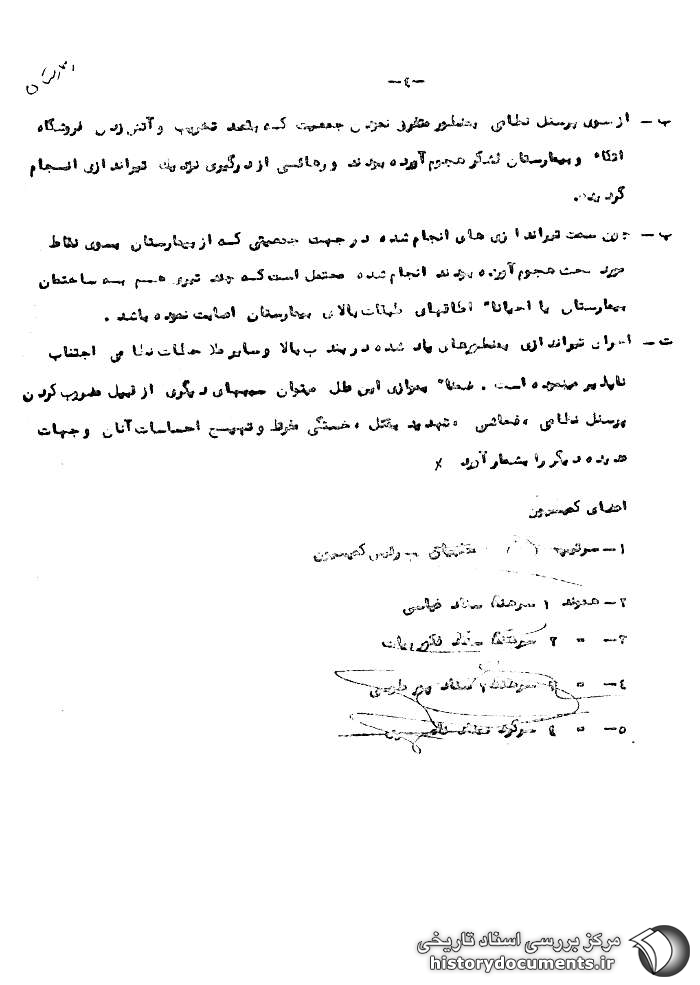 -٤-
ب - از سوی پرسنل نظامی بمنظور متفرق نمودن جمعیت که بقصد تخریب و آتش زدن فروشگاه
اتکاء و بیمارستان لشگر هجوم آورده بودند و رهائی از درگیری نزدیک تیراندازی انجام
گردیده.
پ - چون سمت تیراندازی های انجام شده در جهت جمعیتی که از بیمارستان بسوی نقاط
مورد بحث هجوم آورده بودند انجام شده محتمل است که چند تیری هم به ساختمان
بیمارستان یا احیانا" اطاقهای طبقات بالای بیمارستان اصابت نموده باشد .
ت - اجرای تیراندازی بمنظورهای یاد شده در بند ب بالا و سایر ملاحظات نظامی اجتناب
ناپذیر مینموده است . ضمنا" بموازی این علل میتوان سببهای دیگری از قبیل مضروب کردن
پرسنل نظامی ، فحاشی ، تهدید بقتل ، خستگی مفرط و تهییج احساسات آنان و جهات
عدیده دیگر را بشمار آورد x
اعضای کمیسیون
۱ - سرتیپ - رئیس کمیسیون
۲ - عضو ۱ سرهنگ ستاد
۳ - " ۲ سرهنگ ستاد
٤ - " سرهنگ ستاد
۵ - " سرگرد
مرکز بررسی اسناد تاریخی
historydocuments.ir